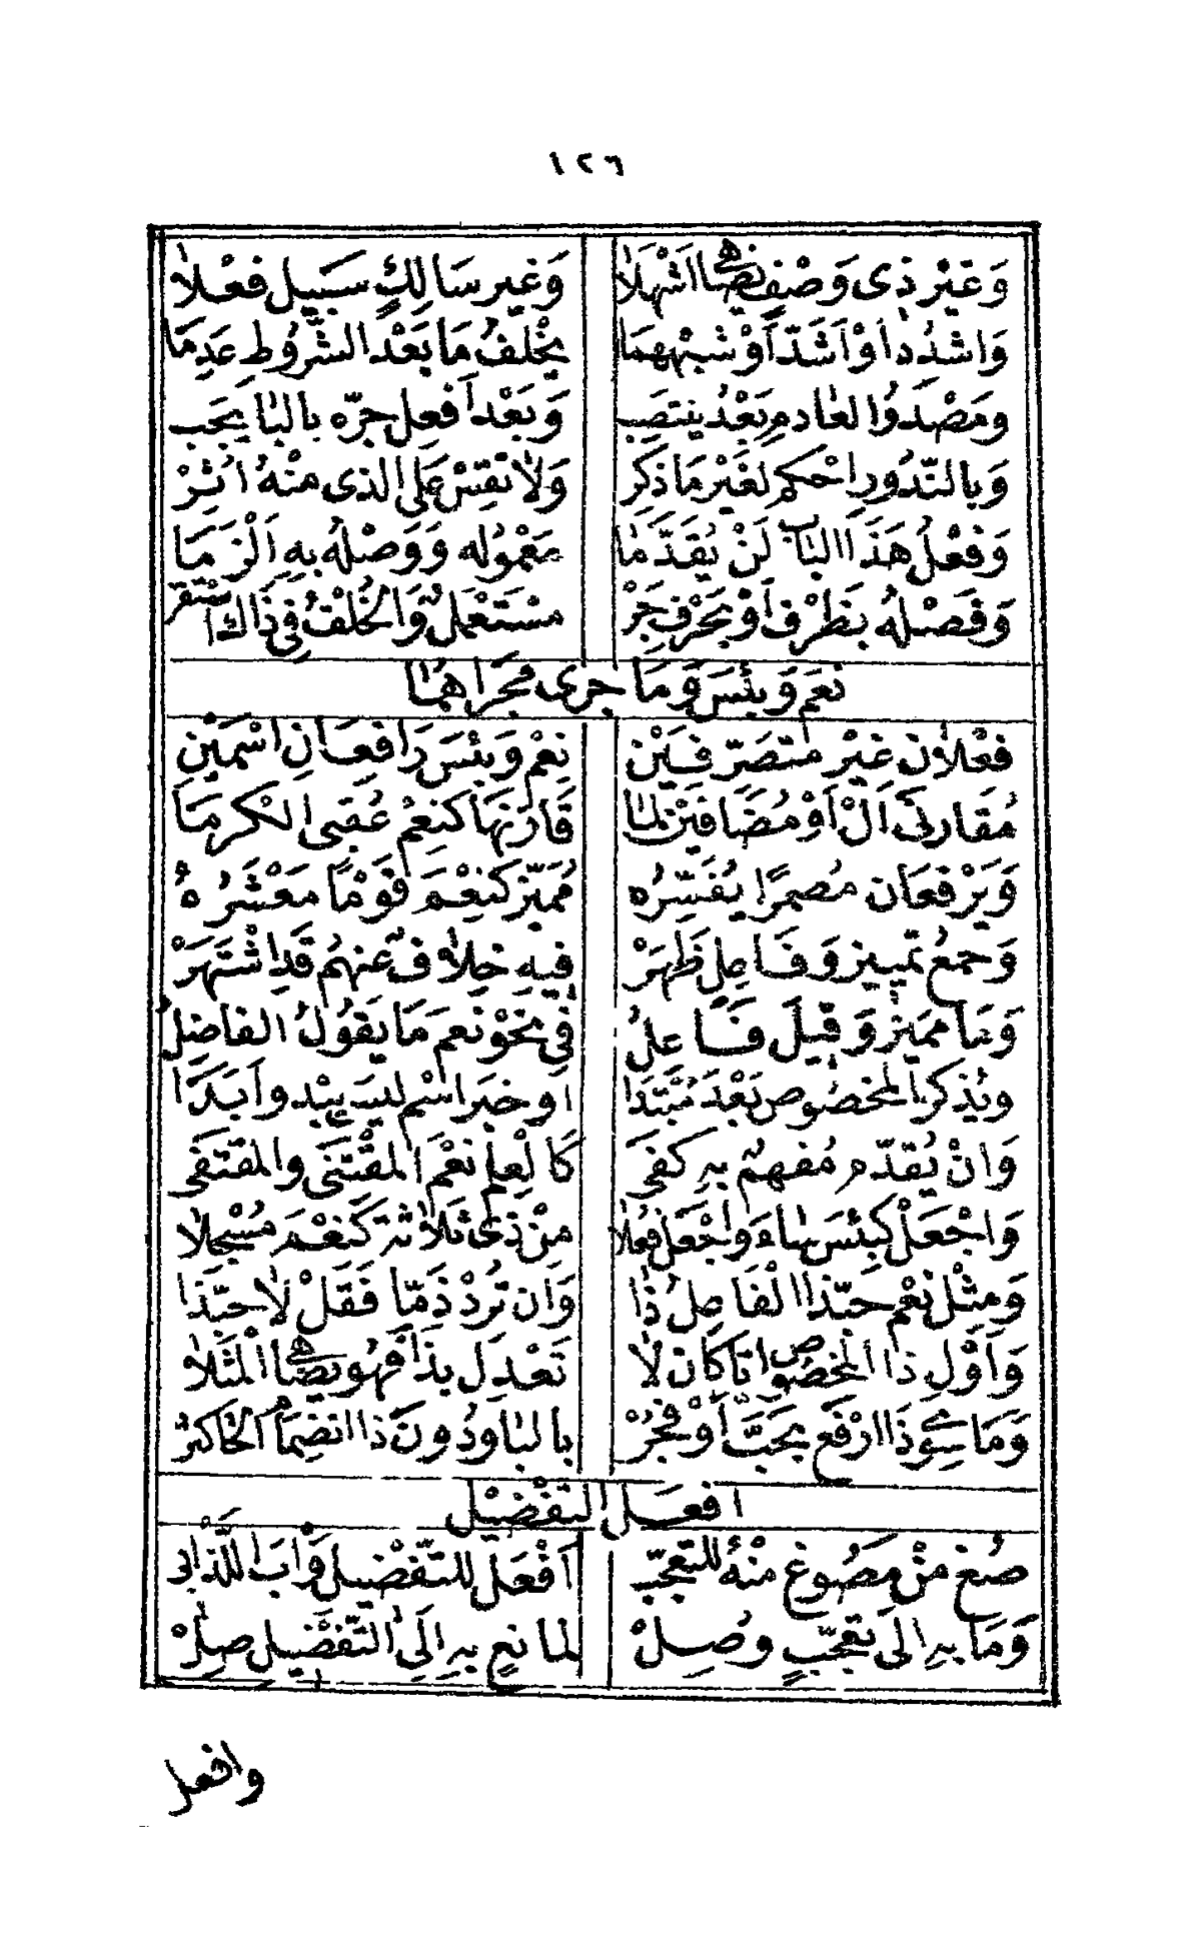 ١٢٦
وَغَيْرِ ذِى وَصْفٍ يُضَاهِى أَشْهَلَا وَغَيْرِ سَالِكٍ سَبِيلَ فُعْلَا
وَاشْدُدْ اَوْ اَشَدَّ أَوْ شِبْهُهُمَا يَخْلُفُ مَا بَعْدَ الشُّرُوطِ عَدِمَا
وَمَصْدَرُ العَادِمِ بَعْدُ يَنْتَصِب وَبَعْدَ اَفْعِل جَرُّه بِالبَا يَجِب
وَبِالنُّدُورِ احْكُم لِغَيْرِ مَا ذُكِر وَلَا تَقِسْ عَلَى الذى مِنْهُ أُثِرْ
وَفِعْلُ هَذَا البَابِ لَنْ يُقَدَّمَا مَعْمُولُه وَوَصْلُهُ بِهِ اَلْزِمَا
وَفَصْلُهُ بِظَرْفٍ أَوْ بِحَرْفِ جَرّْ مُسْتَعْمَلٌ وَالخُلْفُ فِى ذَاكَ اسْتَقَرّ
نِعْمَ وَبِئْسَ وَمَا جَرَى مَجْرَاهُمَا
فِعْلَانِ غَيْرُ مُتَصَرِّفَيْنِ نِعْمَ وَبِئْسَ رَافِعَانِ اسْمَيْنِ
مُقَارِنَى اَلْ اَوْ مُضَافَيْنِ لِمَا قَارَنَهَا كَنِعْمَ عُقْبَى الكُرَمَا
وَيَرْفَعَانِ مُضْمَرًا يُفَسِّرُه مُمَيِّزٌ كَنِعْمَ قَوْمًا مَعْشَرُهُ
وَجَمْعُ تَمْيِيزٍ وَفَاعِلٍ ظَهَرْ فِيهِ خِلَافٌ عَنْهُم قَدِ اشْتَهَرْ
وَمَا مُمَيِّزٌ وَقِيلَ فَاعِلُ فِى نَحْوِ نِعْمَ مَا يَقُولُ الفَاضِلُ
وَيُذْكَرُ المَخْصُوصُ بَعْدُ مُبْتَدَا اَوْ خَبَرَ اسْمٍ لَيْسَ يَبْدُو اَبَدَا
وَاِنْ يُقَدَّم مُفْهِمٌ بِهِ كَفَى كَالعِلْمُ نِعْمَ المُقْتَنَى وَالمُقْتَفَى
وَاجْعَلْ كَبِئْسَ سَاءَ وَاجْعَلْ فَعُلَا مِنْ ذِى ثَلَاثَةٍ كَنِعْمَ مُسْجَلَا
وَمِثْلُ نِعْمَ حَبَّذَا الْفَاعِلُ ذَا وَاِن تُرِدْ ذَمًّا فَقُلْ لَا حَبَّذَا
وَأَوْلِ ذَا المَخْصُوصَ اَيًّا كَانَ لَا تَعْدِلْ بِذَا فَهُوَ يُضَاهِى الْمَثَلَا
وَمَا سِوَى ذَا ارْفَعْ بِحَبَّ أَوْ فَجُرّْ بِالبَا وَدُونَ ذَا انْضِمَامُ الحَا كَثُرْ
اَفْعَلُ التَّفْضِيْلِ
صُغْ مِنْ مَصُوغٍ مِنْهُ لِلتَّعَجُّبِ اَفْعَلَ لِلتَّفْضِيلِ وَأْبَ اللَّذْ اُبِى
وَمَا بِهِ اِلَى تَعَجُّبٍ وُصِلْ لِمَانِعٍ بِهِ اِلَى التَّفْضِيلِ صِلْ
وافعل